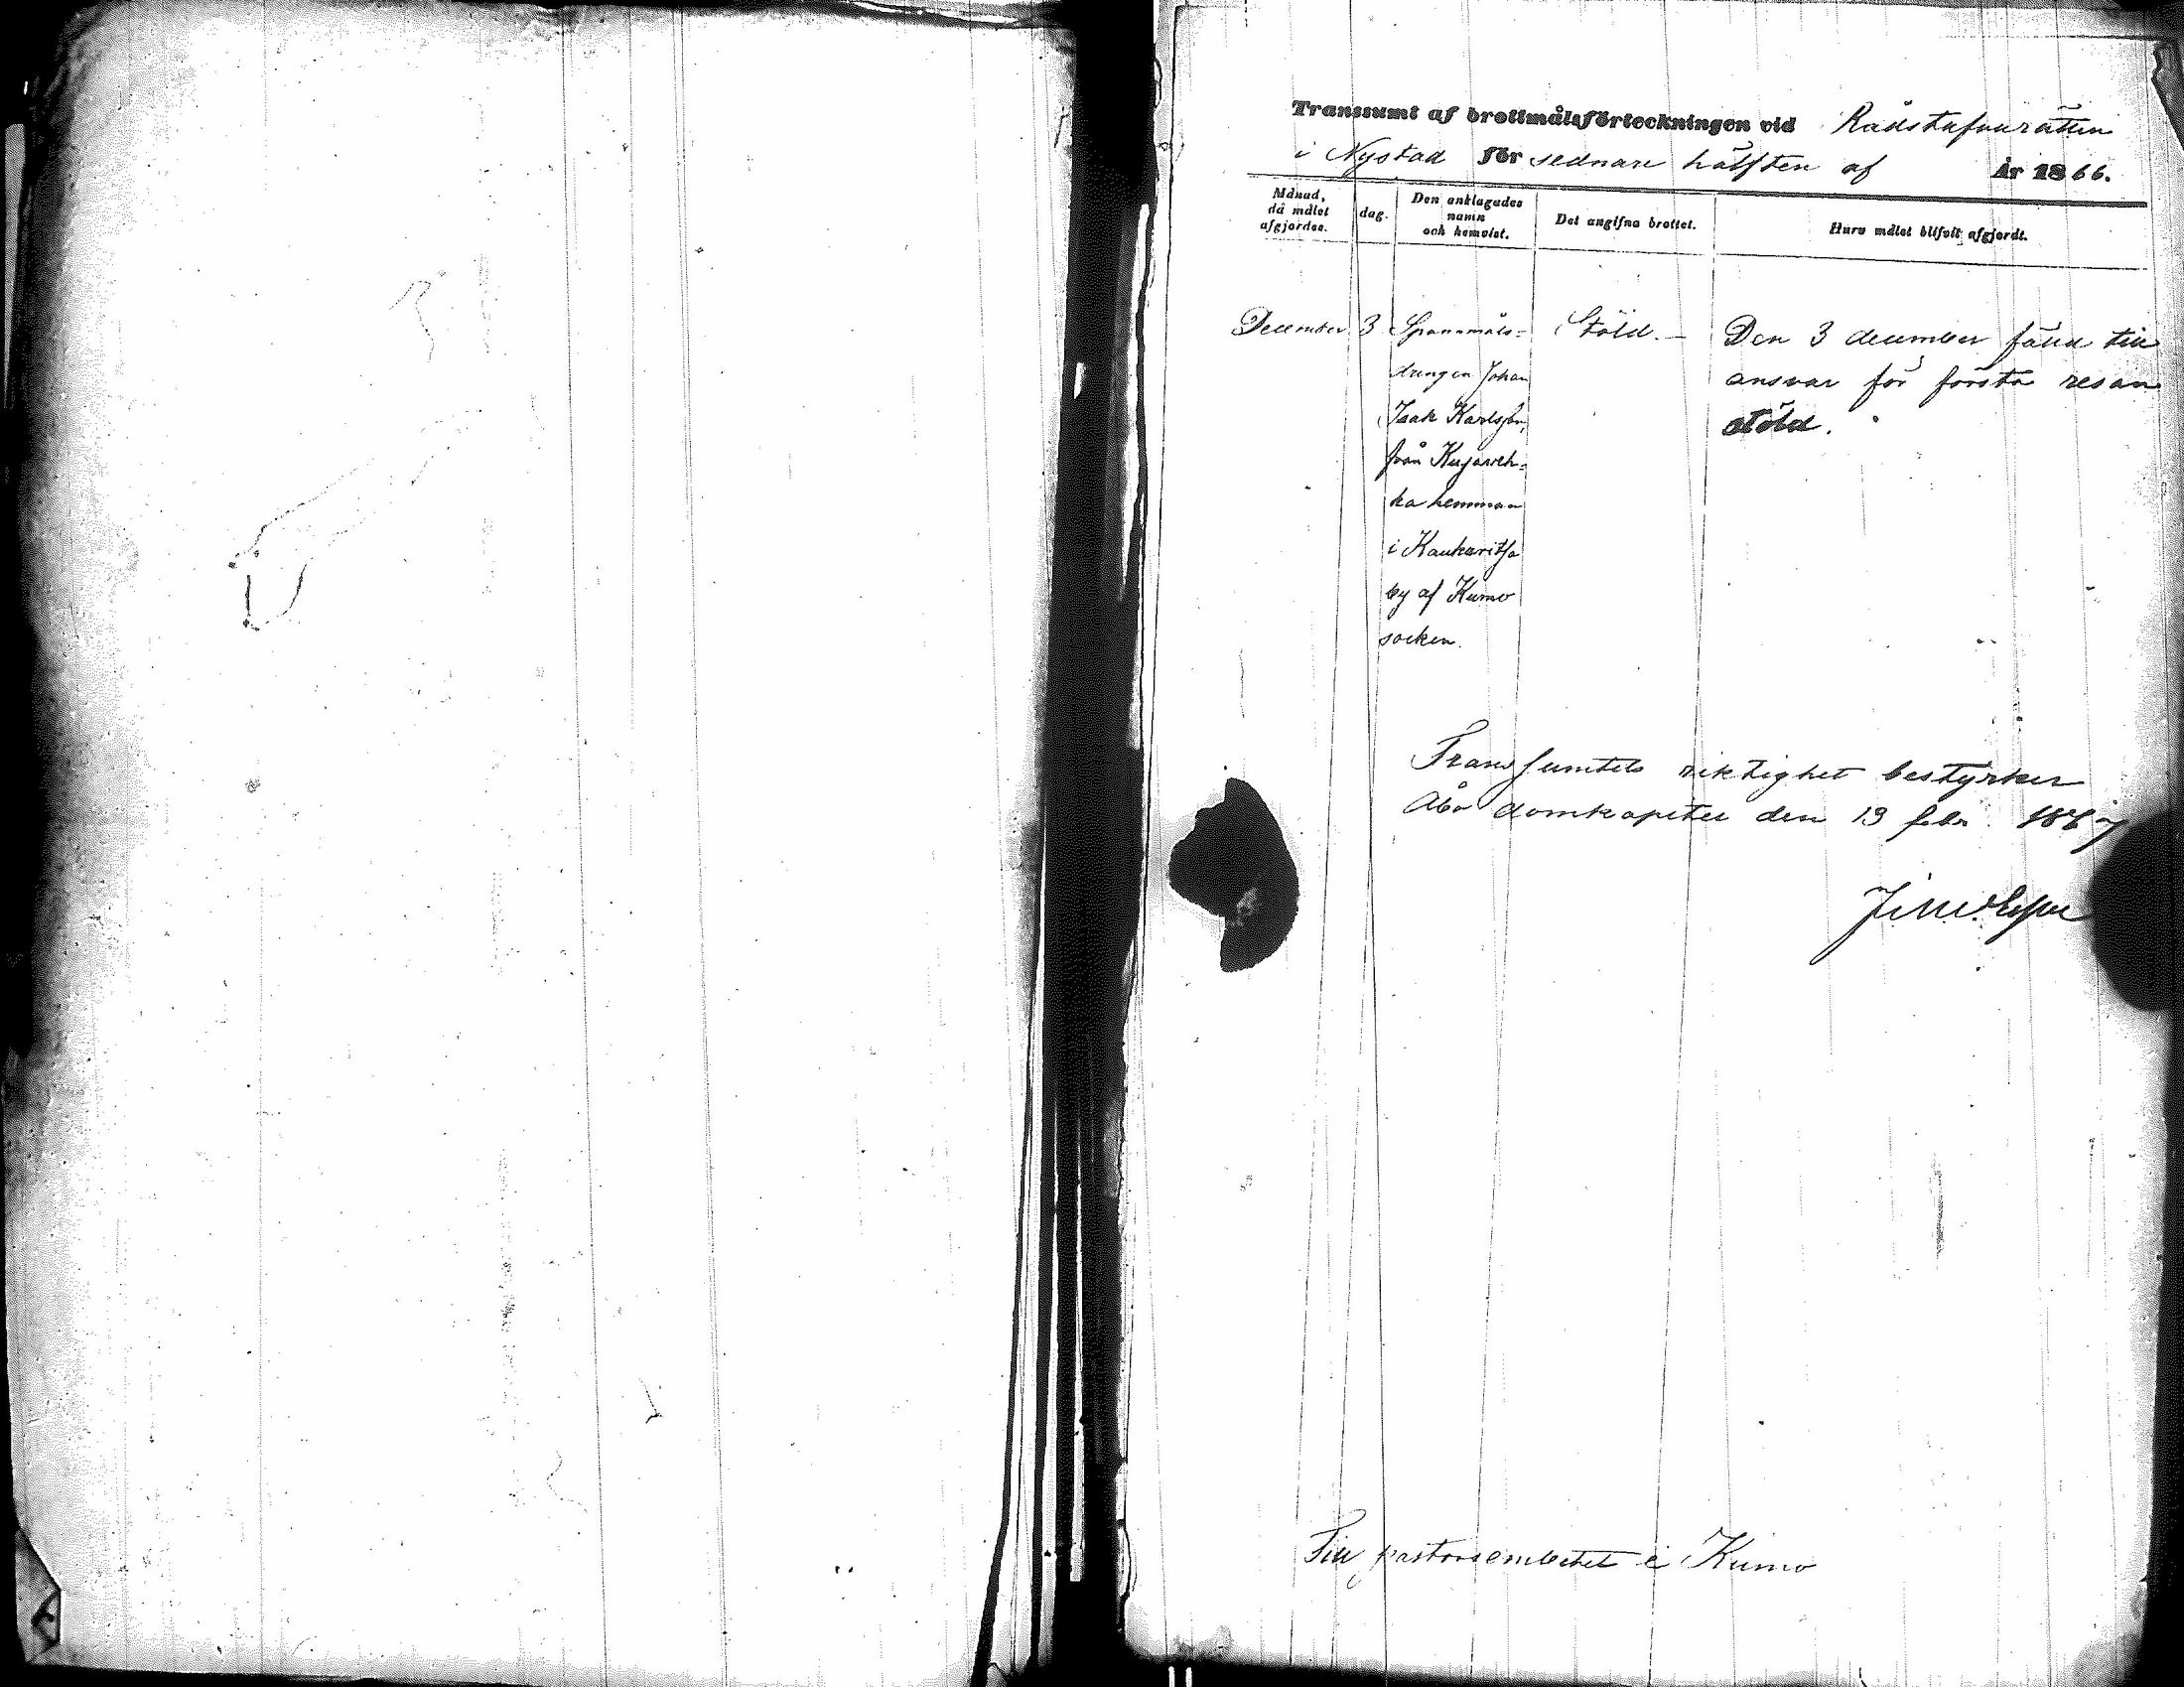 Transsumt af brottmålsförteckningen vid Rådstufvurätten
i Nystad för sednare hälften af År 1866.
Månad, då målet afgjordes.
dag.
Den anklagades namn och hemvist.
Det angifna brottet.
Huru målet blifvit afgjordt.
December 3 Spannmåls- Stöld. — Den 3 december fäld till
drängen Johan ansvar för första resan
Isak Karlsson, stöld.
från
ka hemman
i Kaukaritsa
by af Kumo
socken.
Transsumtets riktighet bestyrker
Åbo domkapitel den 13 febr. 1867
Till pastorsembetet i Kumo